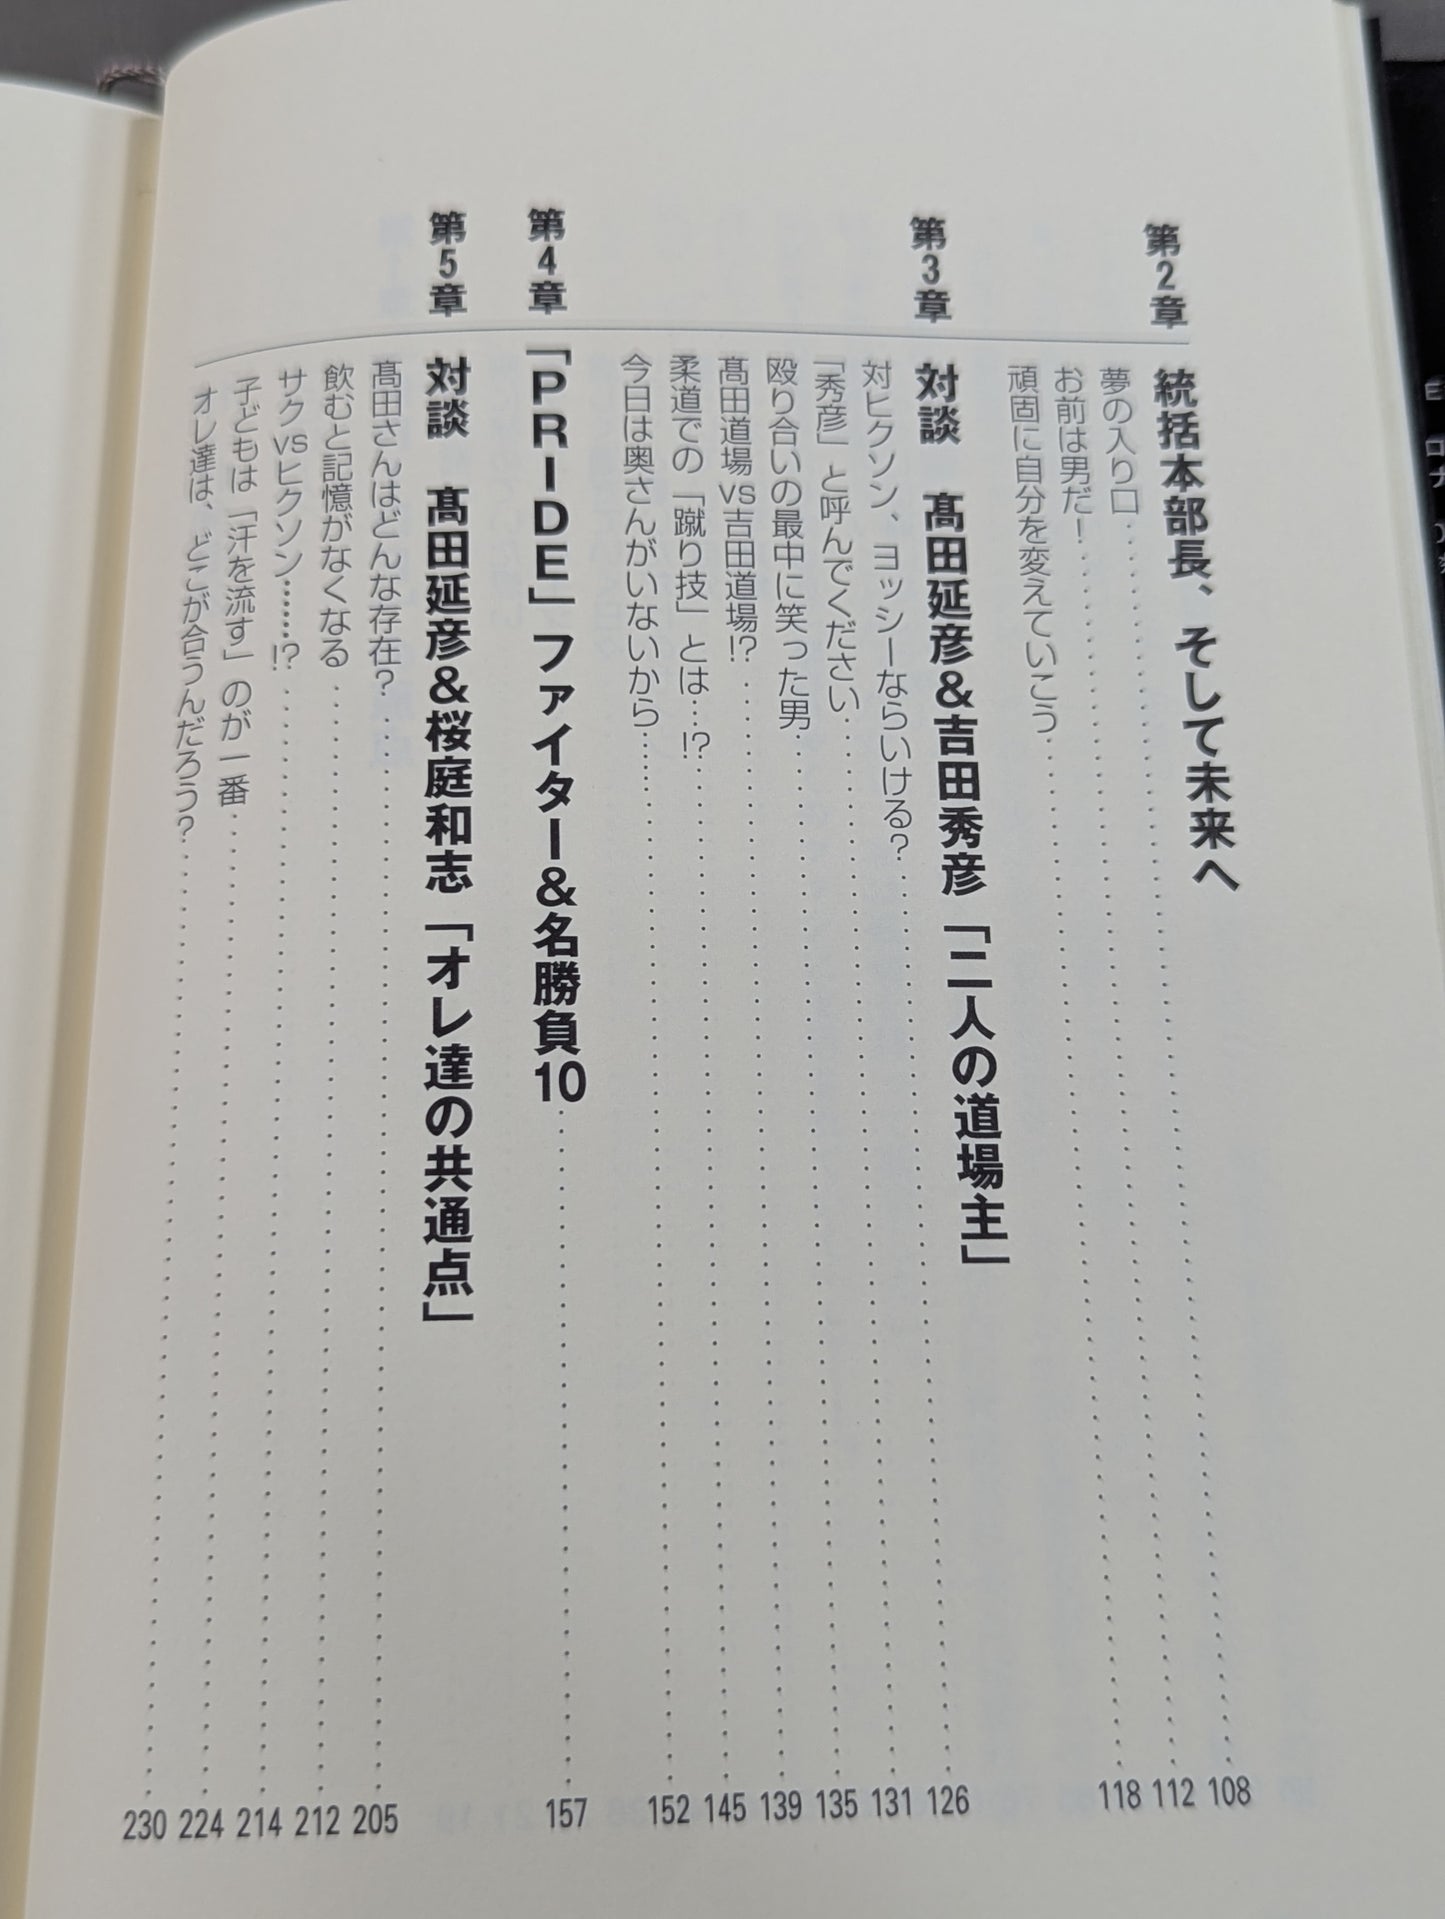 第2章 統括本部長、そして未来へ
夢の入り口 108
お前は男だ! 112
頑固に自分を変えていこう 118
第3章 対談 髙田延彦&吉田秀彦「二人の道場主」
対ヒクソン、ヨッシーならいける? 126
「秀彦」と呼んでください 131
殴り合いの最中に笑った男 135
髙田道場vs吉田道場!? 139
柔道での「蹴り技」とは…!? 145
今日は奥さんがいないから 152
第4章 「PRIDE」ファイター&名勝負10 157
第5章 対談 髙田延彦&桜庭和志「オレ達の共通点」
髙田さんはどんな存在? 205
飲むと記憶がなくなる 212
サクvsヒクソン……!? 214
子どもは「汗を流す」のが一番 224
オレ達は、どこが合うんだろう? 230